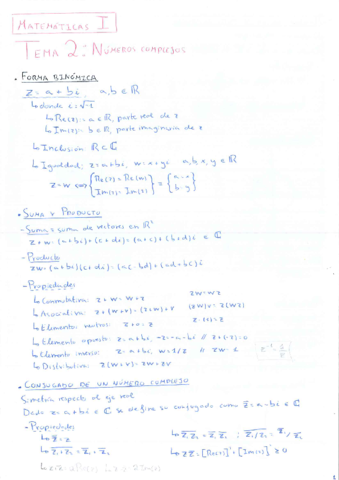 MATEMÁTICAS I
TEMA 2: NÚMEROS COMPLEJOS
• FORMA BINÓMICA
z = a + bi, a,b ∈ ℝ
↳ donde i = √-1
↳ Re(z) = a ∈ ℝ, parte real de z
↳ Im(z) = b ∈ ℝ, parte imaginaria de z
↳ Inclusión ℝ ⊂ ℂ
↳ Igualdad: z = a + bi, w = x + yi a,b,x,y ∈ ℝ
z = w {Re(z) = Re(w) Im(z) = Im(w)} = {a = x b = y}
• SUMA Y PRODUCTO
- Suma = suma de vectores en ℝ²
z + w = (a + bi) + (c + di) = (a + c) + (b + d)i ∈ ℂ
- Producto
zw = (a + bi)(c + di) = (ac - bd) + (ad + bc)i
- Propiedades
↳ Conmutativa: z + w = w + z zw = wz
↳ Asociativa: z + (w + v) = (z + w) + v (zw)v = z(wv)
↳ Elemento neutro: z + 0 = z z · 1 = z
↳ Elemento opuesto: z = a + bi, -z = -a - bi // z + (-z) = 0
↳ Elemento inverso: z = a + bi, w = 1/z //
↳ Distributiva: z(w + v) = zw + zv
• CONJUGADO DE UN NÚMERO COMPLEJO
Simetría respecto al eje real
Dado z = a + bi ∈ ℂ se define su conjugado como z̄ = a - bi ∈ ℂ
- Propiedades
↳ zz̄ = [Re(z)]² + [Im(z)]² ≥ 0